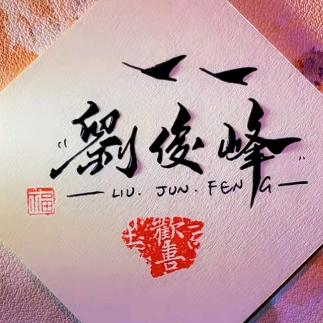 "劉俊峰"
— LIU. JUN. FENG —
歡喜